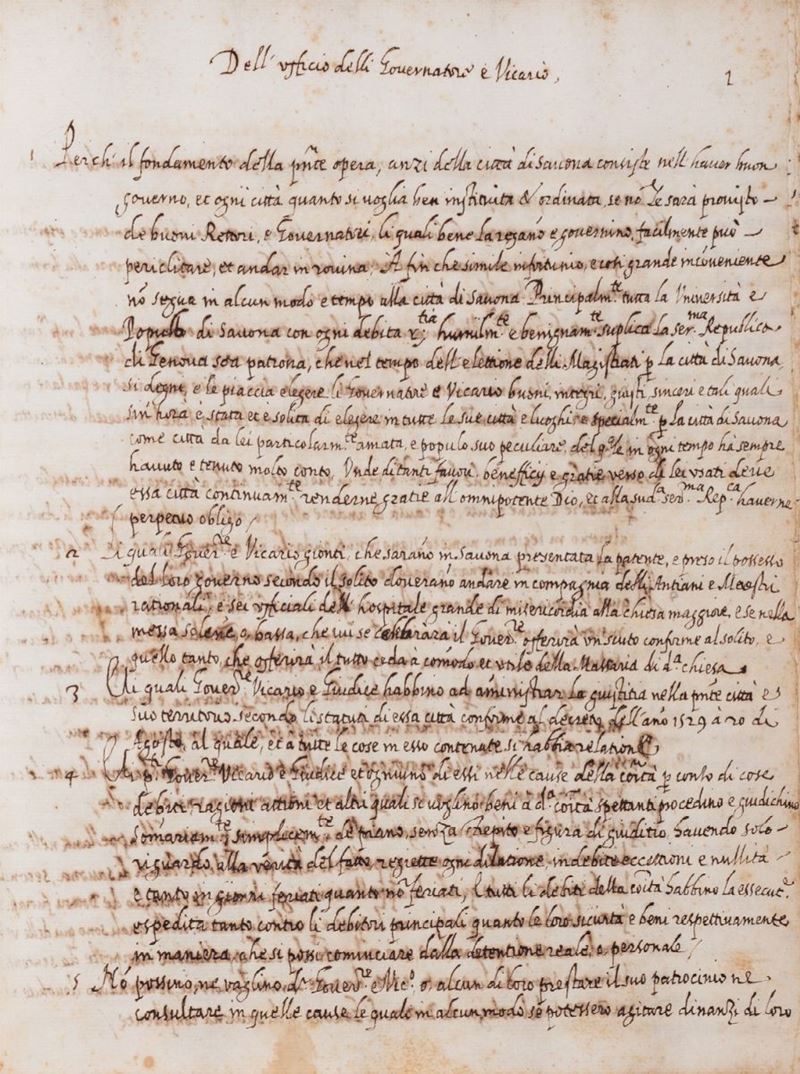 Dell' ufficio delli Governatore e Vicario,
1
1 Perche il fondamento della pnte opera, anzi della città di Savona consiste nell' haver buon
governo, et ogni città quanto si voglia ben instituita & ordinata, se no le sara provisto
de buoni Rettori, e Governatori, li quali bene la regano e governino, facilmente può
periclitare, et andar in rovina, A fin che simile infortunio, e con grande incoveniente
no segua in alcun modo e tempo alla città di Savona Principalmte tutta la Università e
Popullo di Savona con ogni debita rtia humilmte e benignamte suplica la serma Republica
di Genova sea patrona, che nel tempo dell' elettione delli Magistrati p la città di Savona
si degne, e le piaccia elegere li Governatore e Vicario buoni, integri, giusti, sinceri e tali quali
sin hora è stata et è solita di elegere in tutte le sue città e luoghi e specialmte p la città di Savona
come città da lei particolarmte amata, e populo suo peculiare, del qle in ogni tempo ha sempre
havuto e tenuto molto conto, Unde di tanti favori, beneficij e gratie verso di lei usati deve
essa città continuamte renderne gratie all' omnipotente Dio, et alla suda serma Repca haverne
perpetuo obligo /
2 Li quali Goverre e Vicario gionti, che sarano in Savona presentata la patente, e preso il possesso
del loro governo secondo il solito doverano andare in compagnia delli Antiani e Maestri
rationali, e sei ufficiali dell' hospitale grande di misericordia alla chiesa maggiore, e se nella
messa solene, o bassa, che ivi se celebrarà il Goverre offerirà un scuto conforme al solito, e
quello tanto, che offerirà il tutto ceda à comodo et utile della Massaria di da chiesa
3 Li quali Goverre Vicario e Giudice habbino ad aministrar la giustitia nella pnte città e
suo territorio secondo li statuti di essa città conforme al decreto dell' ano 1529 à 20 di
Agosto, al quale, et à tutte le cose in esso contenute si habbia relatione
4 Li pti Goverre Vicario e Giudice et ogniuno di essi nelle cause della coità p conto di cose
debiti, ragioni attioni et altri quali se voglino beni à da coità spettanti procedino e giudichino
somariamte simplicemte de plano, senza strepito e figura di giuditio, havendo solo
riguardo, alla verità del fatto, regiette ogni dilatione, indebite eccettioni e nullità
e tanto in giorni feriati quanto no feriati, E tutti li debiti della coità habbino la essecute
espedita tanto contro li debitori principali quanto le loro sicurtà e beni respettivamente
in maniera, che si possi cominciare dalla detentione reale, o personale /
5 No possino, ne vaglino di Goverre e Vico o alcun di loro prestare il suo patrocinio ne
consultare in quelle cause le quali in alcun modo se potessero agitare dinanzi di loro